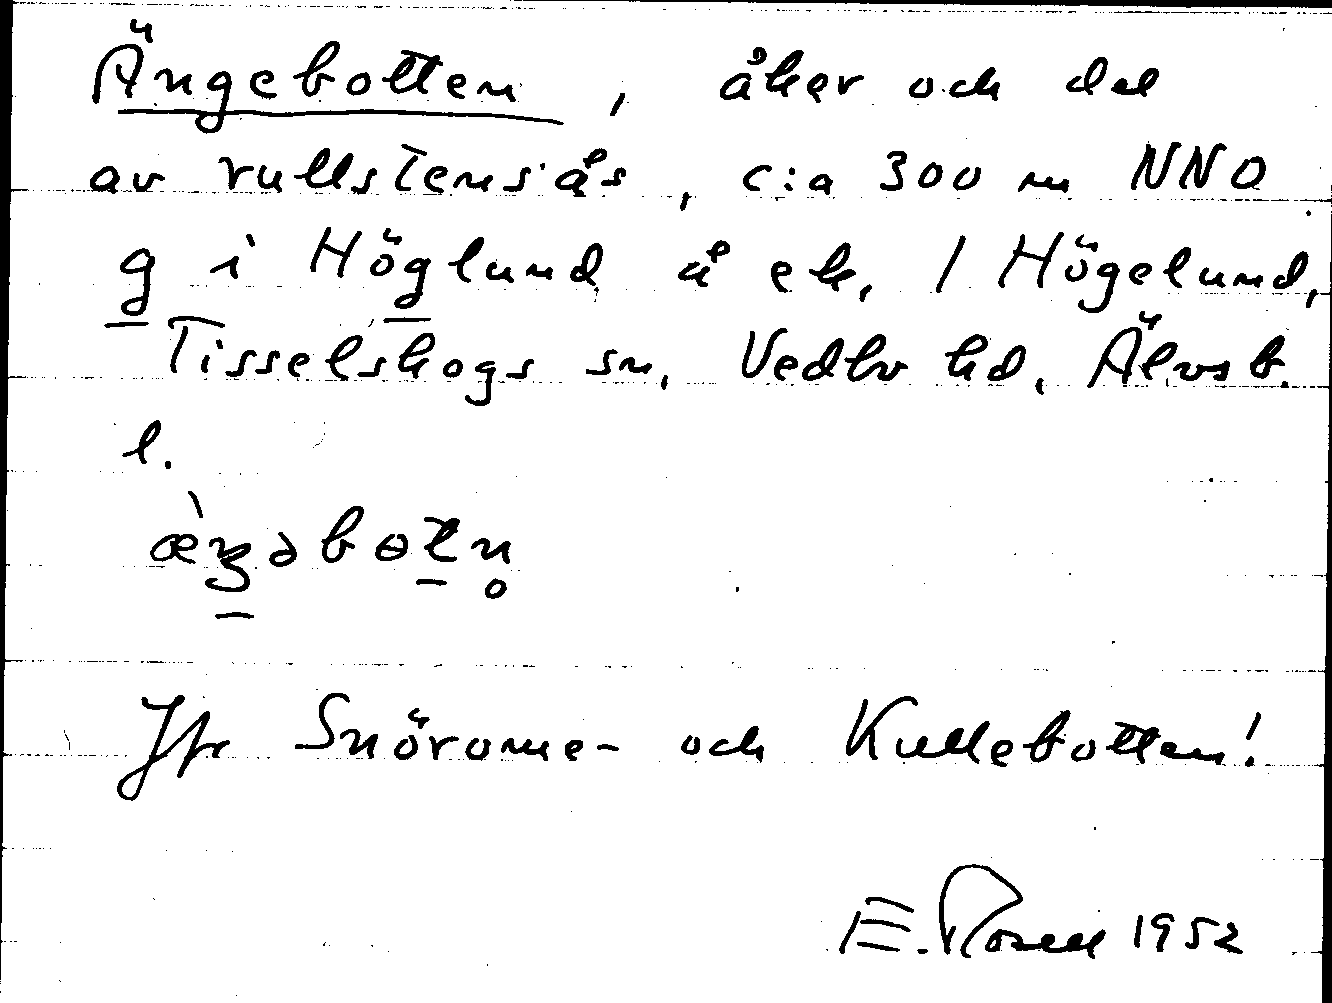 Ängebotten, åker och del
av rullstensås, c:a 300 m NNO
g i Höglund å ek. / Högelund,
Tisselskogs sn, Vedbo hd, Älvsb.
l.
æ̀ŋəbɵt̲n̥
Jfr Snörome- och Kullebotten!
E. Rosell 1952